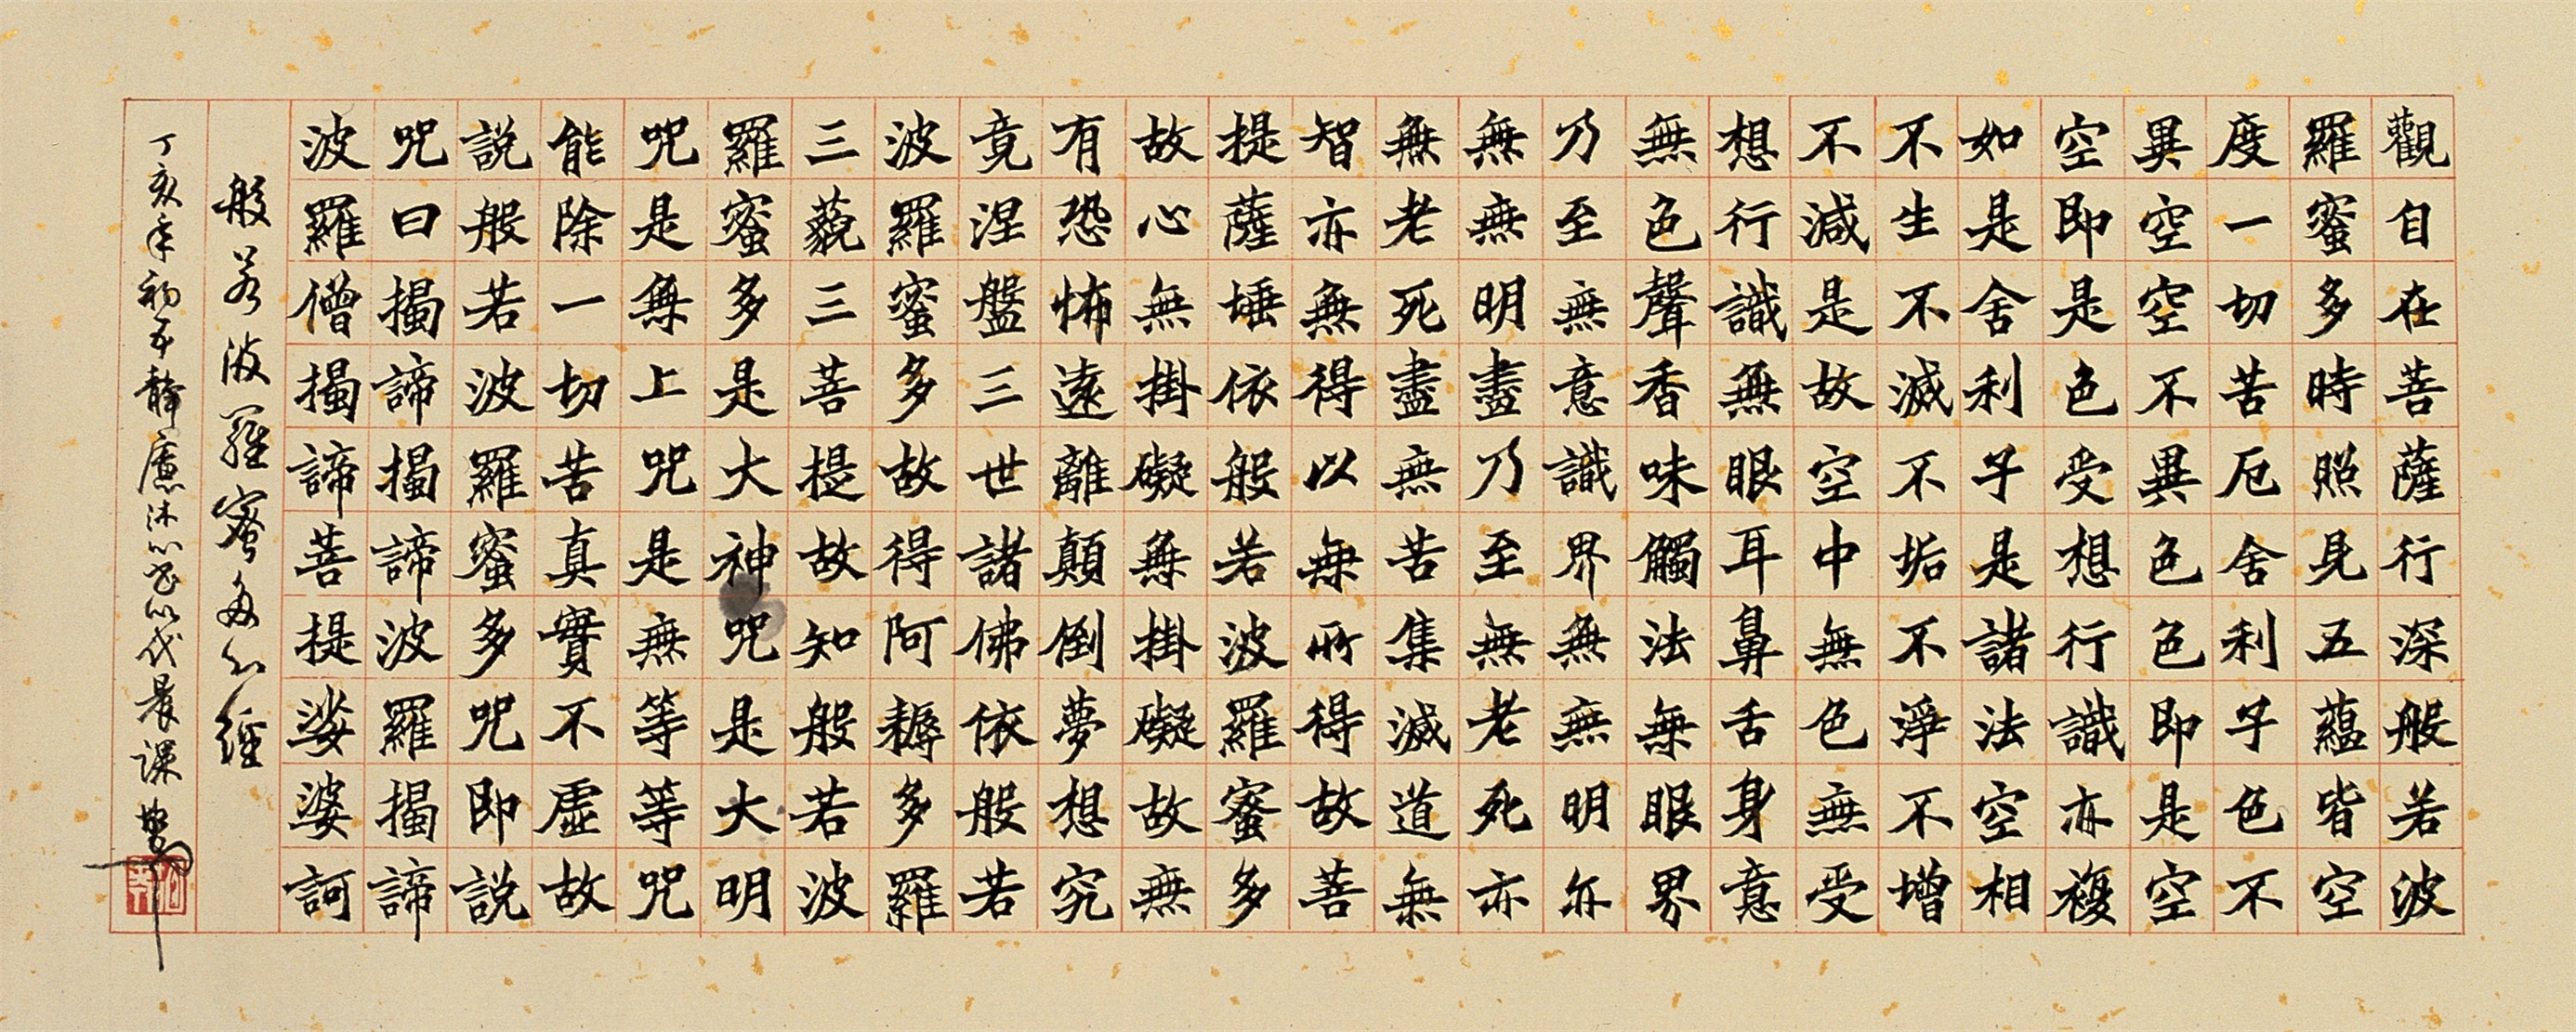 觀自在菩薩行深般若波
羅蜜多時照見五蘊皆空
度一切苦厄舍利子色不
異空空不異色色即是空
空即是色受想行識亦複
如是舍利子是諸法空相
不生不滅不垢不淨不增
不減是故空中無色無受
想行識無眼耳鼻舌身意
無色聲香味觸法無眼界
乃至無意識界無無明亦
無無明盡乃至無老死亦
無老死盡無苦集滅道無
智亦無得以無所得故菩
提薩埵依般若波羅蜜多
故心無掛礙無掛礙故無
有恐怖遠離顛倒夢想究
竟涅盤三世諸佛依般若
波羅蜜多故得阿耨多羅
三藐三菩提故知般若波
羅蜜多是大神咒是大明
咒是無上咒是無等等咒
能除一切苦真實不虛故
說般若波羅蜜多咒即說
咒曰揭諦揭諦波羅揭諦
波羅僧揭諦菩提娑婆訶
般若波羅蜜多心經
丁亥年初五靜廬沐心書以代晨課